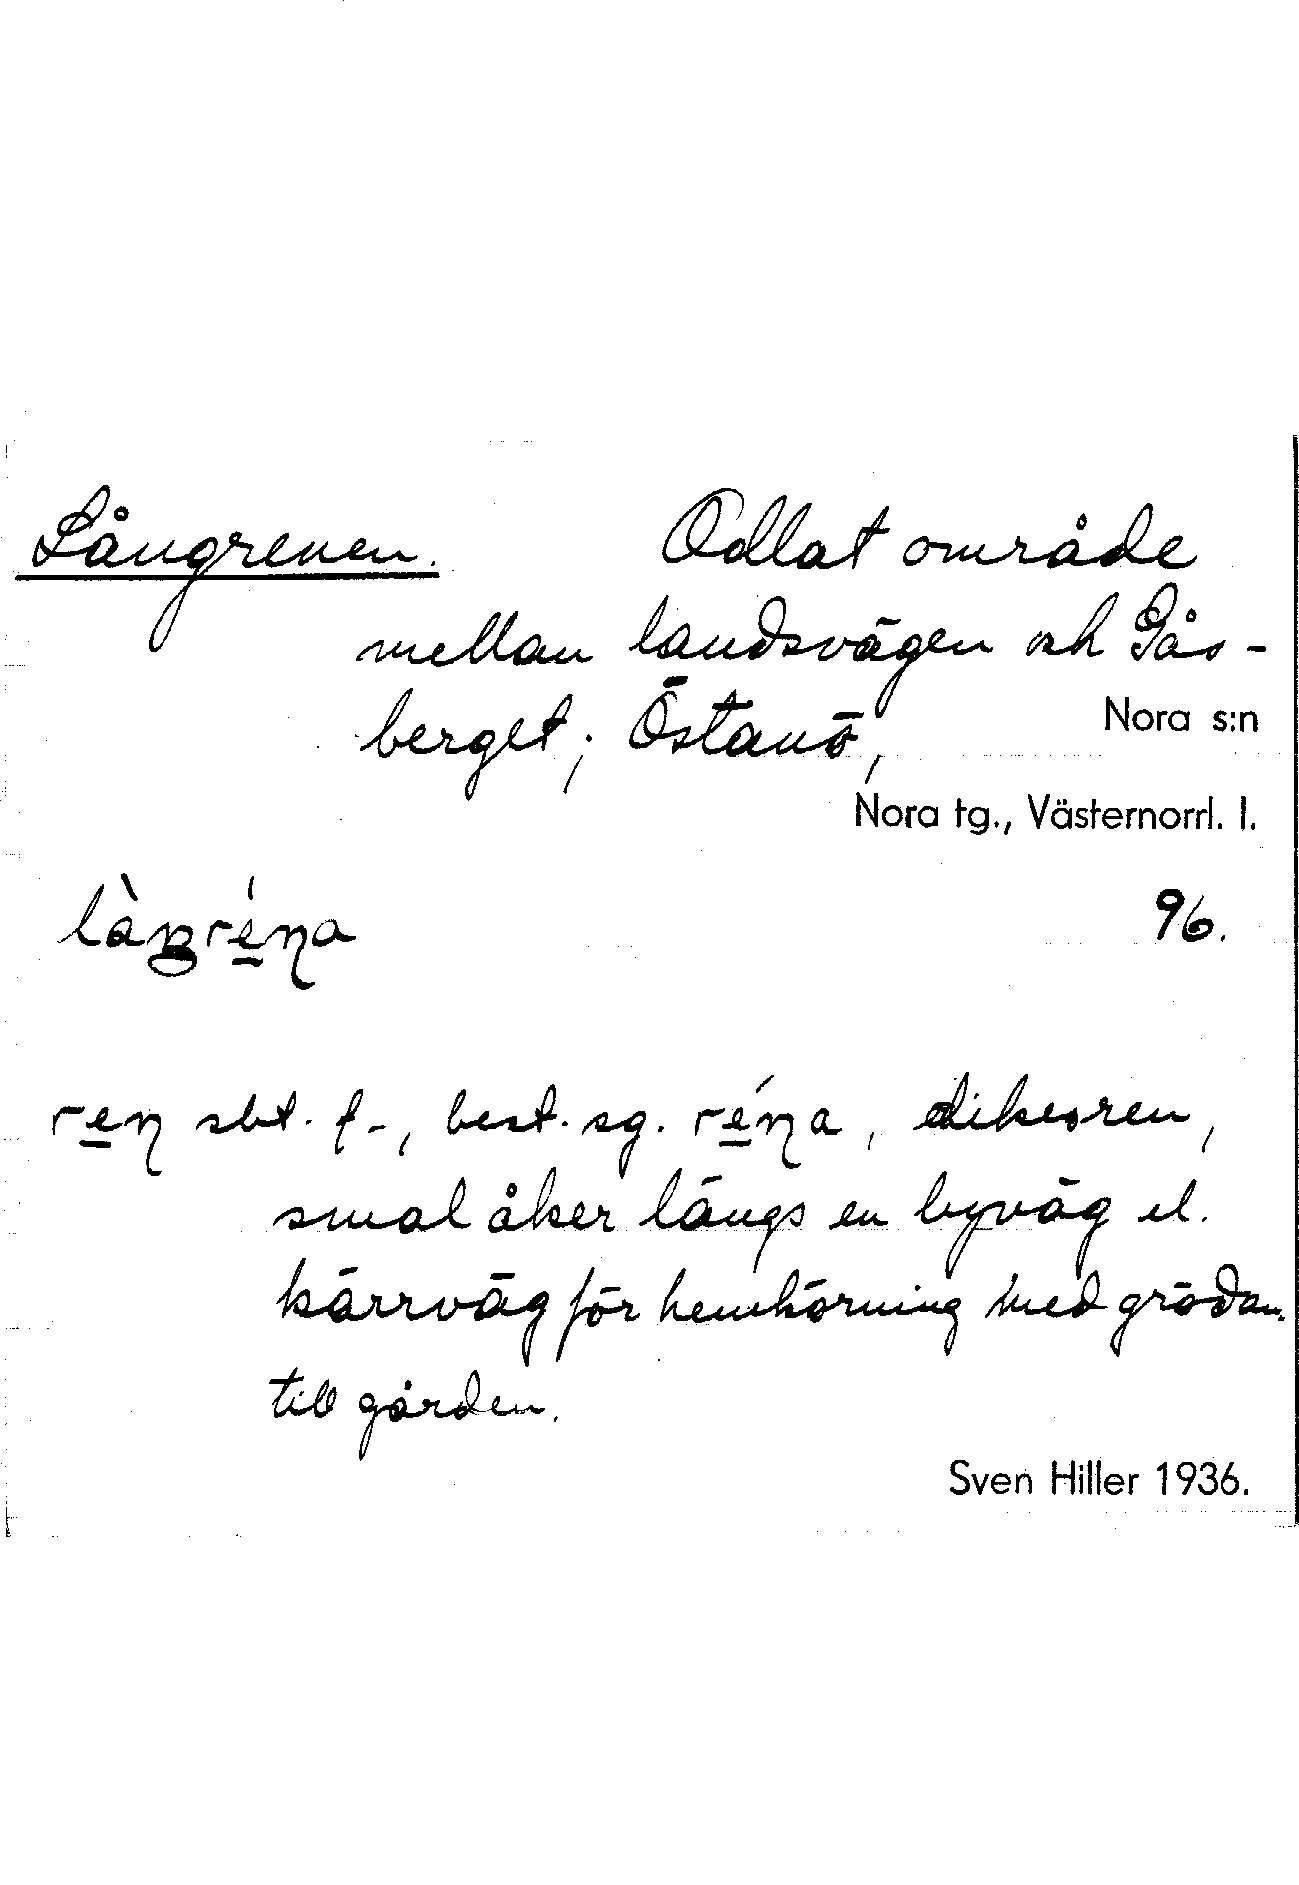 Långrenen. Odlat område
mellan landsvägen och Gås-
berget; Östanö,
Nora s:n
Nora tg., Västernorrl. l.
96.
sbt. f., best. sg. dikesren,
smal åker längs en byväg el.
kärrväg för hemkörning med grödan
till gården.
Sven Hiller 1936.